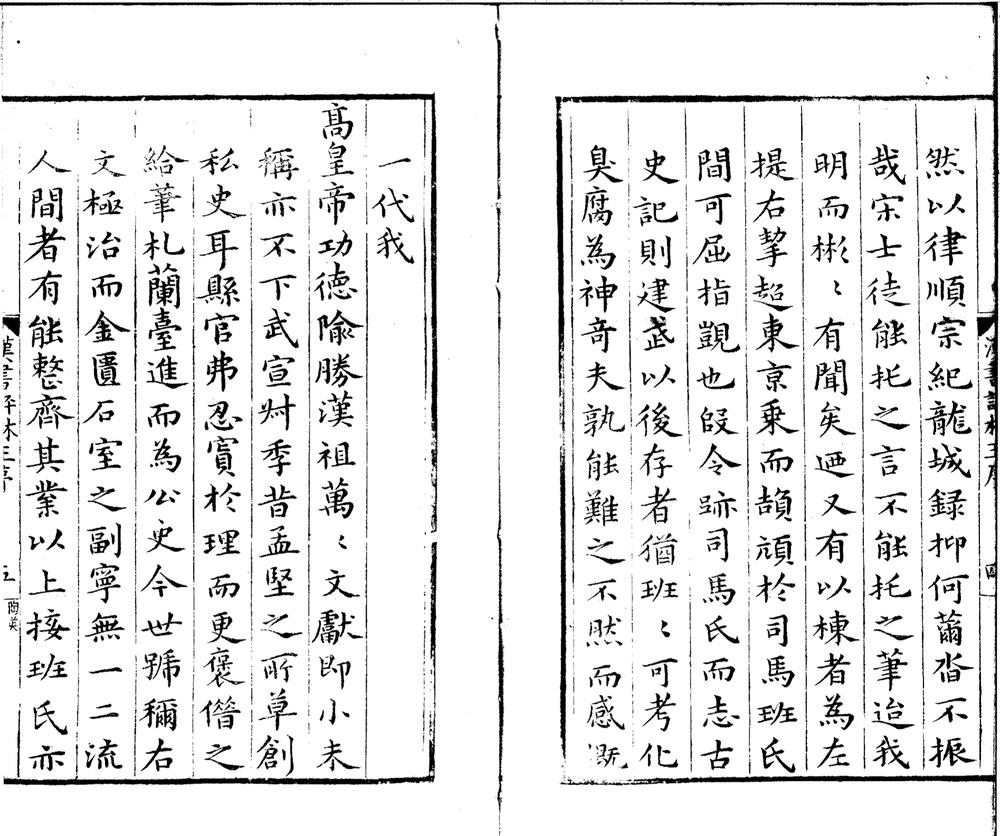 然以律順宗紀龍城録抑何薾沓不振
哉宋士徒能托之言不能托之筆迨我
明而彬〻有聞矣迺又有以棟者為左
提右挈超東京乗而頡頏於司馬班氏
間可屈指覬也叚令跡司馬氏而志古
史記則建武以後存者猶班〻可考化
臭腐為神竒夫孰能難之不然而感慨
一代我
髙皇帝功徳隃勝漢祖萬〻文獻即小未
稱亦不下武宣时季昔孟堅之所草創
私史耳縣官弗忍寘於理而更褒借之
給筆札蘭臺進而為公史今世號稱右
文極治而金匱石室之副寧無一二流
人間者有能整齊其業以上接班氏亦
漢書評林王序
五